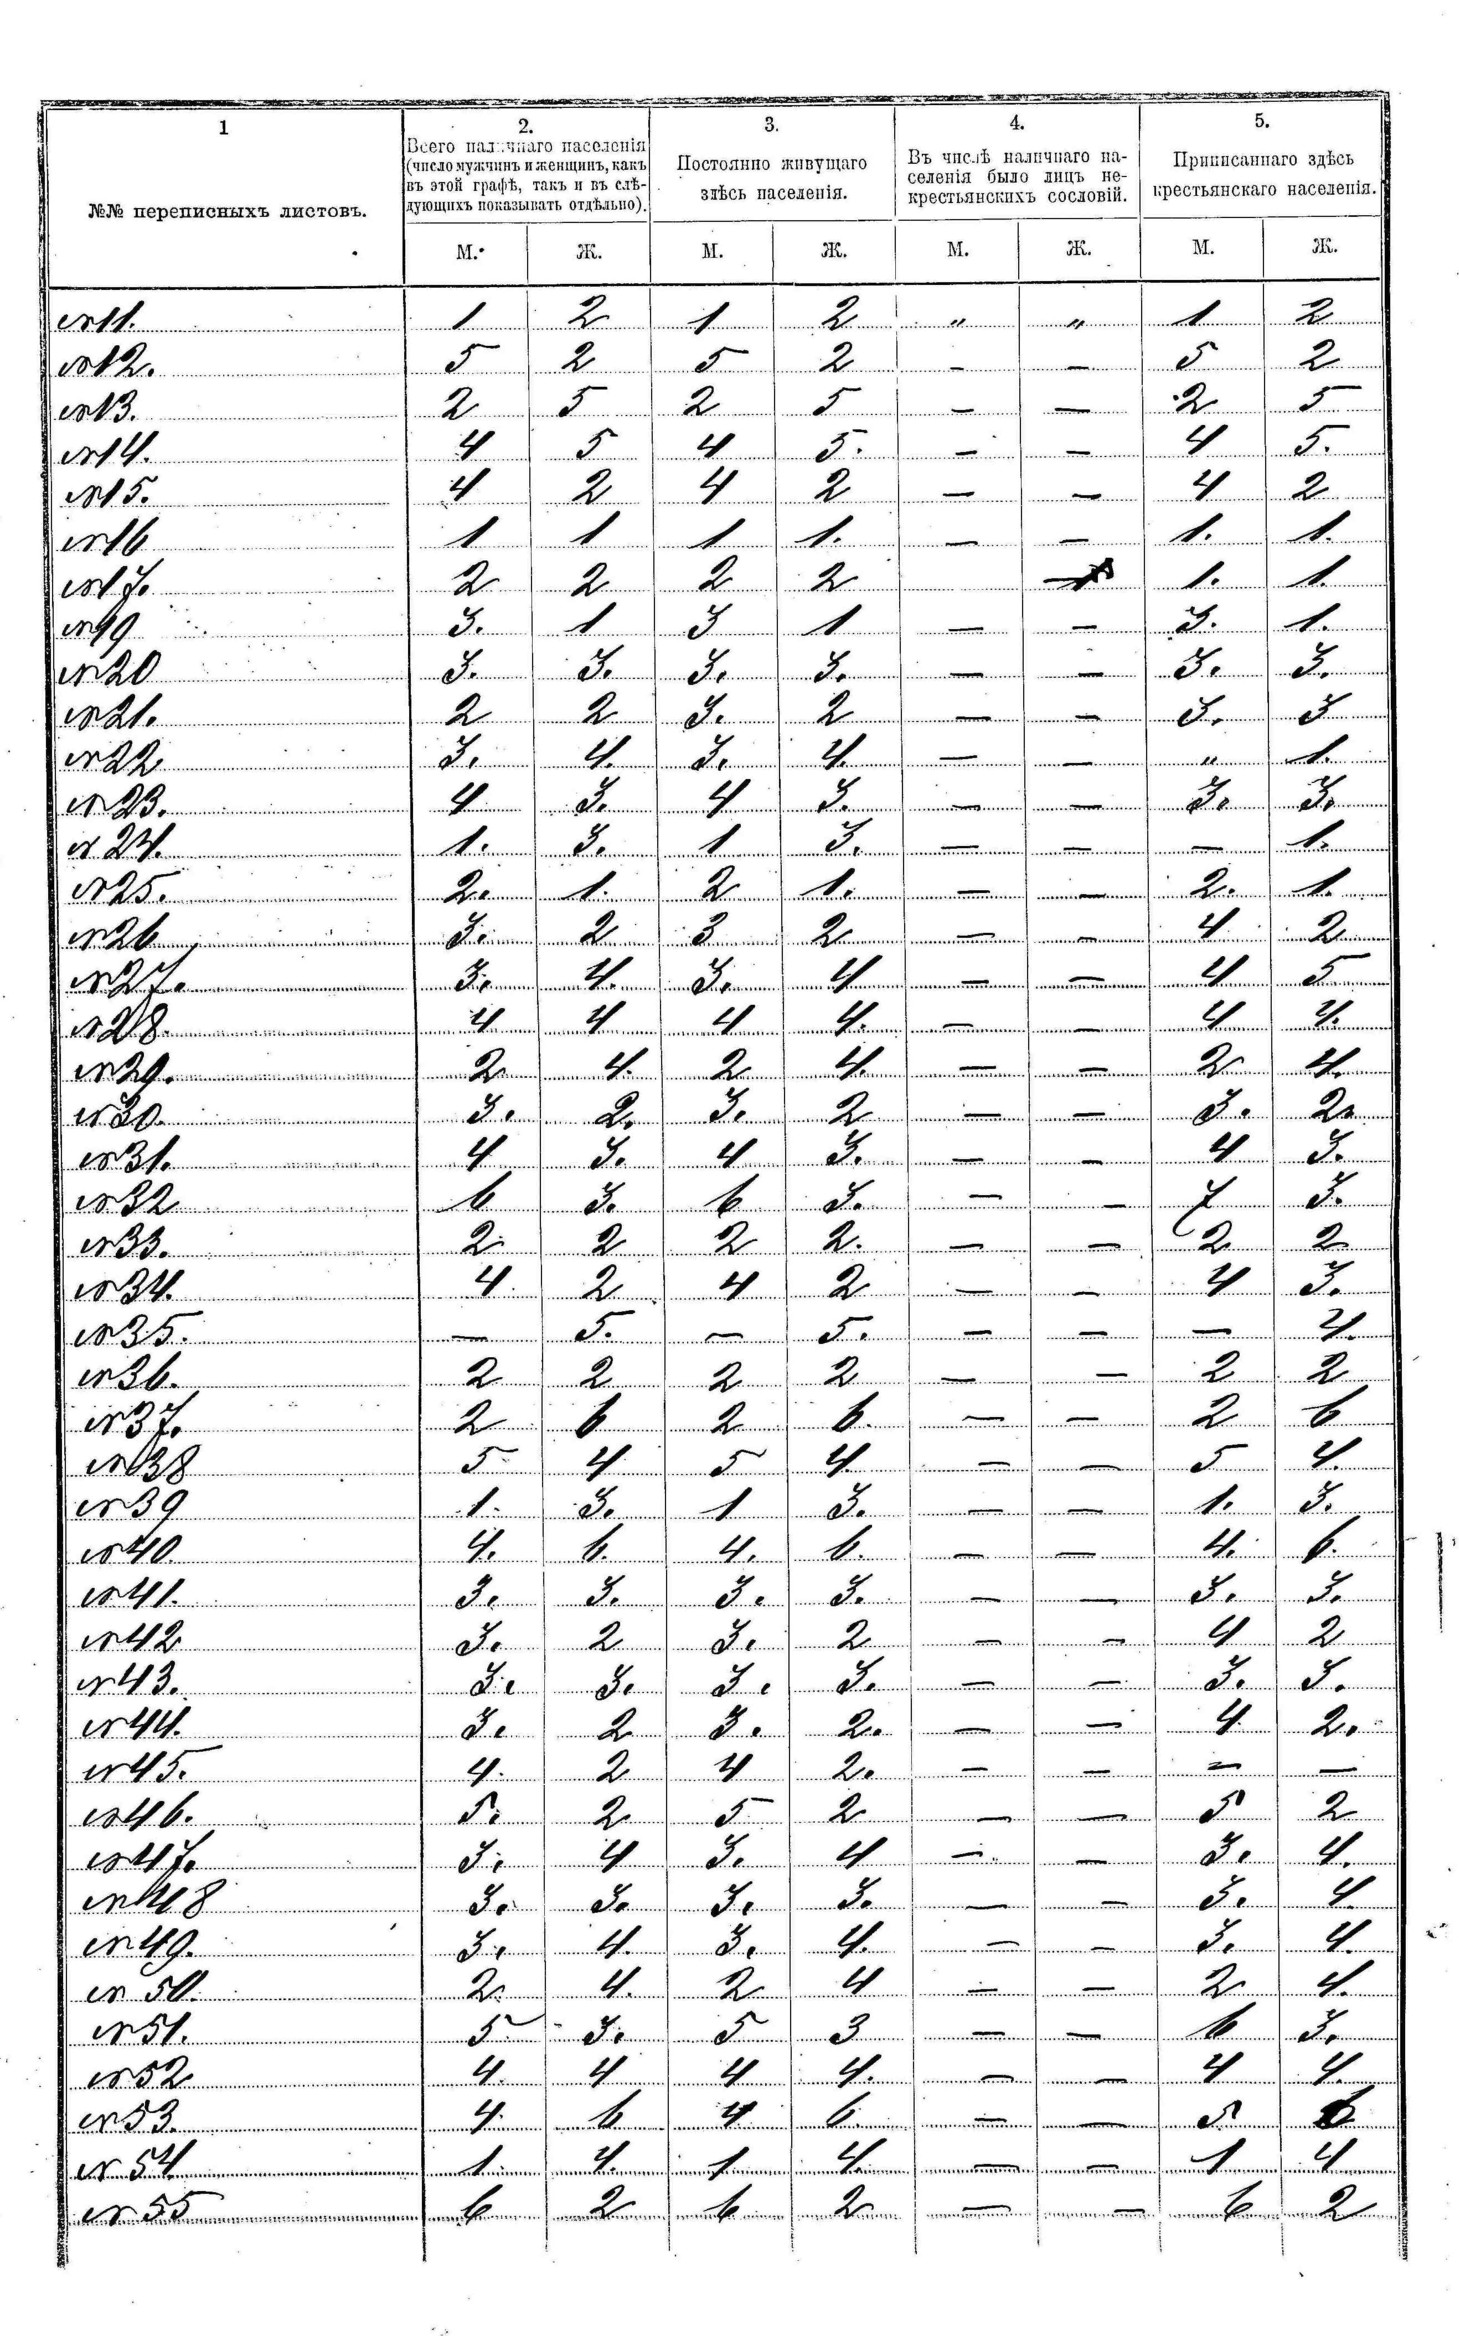 1 2. 3. 4. 5.
№№ переписныхъ листовъ.
Всего наличнаго населенія
(число мужчинъ и женщинъ, какъ
въ этой графѣ, такъ и въ слѣ-
дующихъ показывать отдѣльно).
Постоянно живущаго
здѣсь населенія.
Въ числѣ наличнаго на-
селенія было лицъ не-
крестьянскихъ сословій.
Приписаннаго здѣсь
крестьянскаго населенія.
М. Ж. М. Ж. М. Ж. М. Ж.
№11. 1 2 1 2 " " 1 2
№12. 5 2 5 2 - - 5 2
№13. 2 5 2 5 - - 2 5
№14. 4 5 4 5. - - 4 5.
№15. 4 2 4 2 - - 4 2
№16 1 1 1 1. - - 1. 1.
№17. 2 2 2 2 1. 1.
№19 3. 1 3 1 - - 3. 1.
№20 3. 3. 3. 3. - - 3. 3.
№21. 2 2 3. 2 - - 3. 3
№22 3. 4. 3. 4. - - " 1.
№23. 4 3. 4 3. - - 3. 3.
№24. 1. 3. 1 3. - - - 1.
№25. 2. 1. 2 1. - - 2. 1.
№26 3. 2 3 2 - - 4 2
№27. 3. 4. 3. 4 - - 4 5
№28. 4 4 4 4. - - 4 4.
№29. 2 4. 2 4. - - 2 4.
№30. 3. 2. 3. 2 - - 3. 2.
№31. 4 3. 4 3. - - 4 3.
№32 6 3. 6 3. - - 7 3.
№33. 2 2 2 2. - - 2 2
№34. 4 2 4 2 - - 4 3.
№35. - 5. - 5. - - - 4.
№36. 2 2 2 2 - - 2 2
№37. 2 6 2 6. - - 2 6
№38 5 4 5 4. - - 5 4.
№39 1. 3. 1 3. - - 1. 3.
№40. 4. 6. 4. 6. - - 4. 6.
№41. 3. 3. 3. 3. - - 3. 3.
№42 3. 2 3. 2 - - 4 2
№43. 3. 3. 3. 3. - - 3. 3.
№44. 3. 2 3. 2. - - 4 2.
№45. 4. 2 4 2. - - - -
№46. 5. 2 5 2 - - 5 2
№47. 3. 4 3. 4 - - 3. 4.
№48 3. 3. 3. 3. - - 3. 4.
№49. 3. 4. 3. 4. - - 3. 4.
№50. 2 4. 2 4 - - 2 4.
№51. 5 3. 5 3 - - 6 3.
№52 4. 4 4 4. - - 4 4.
№53. 4. 6 4 6. - - 5 6
№54 1. 4. 1 4. - - 1 4
№55 6 2 6 2 - - 6 2